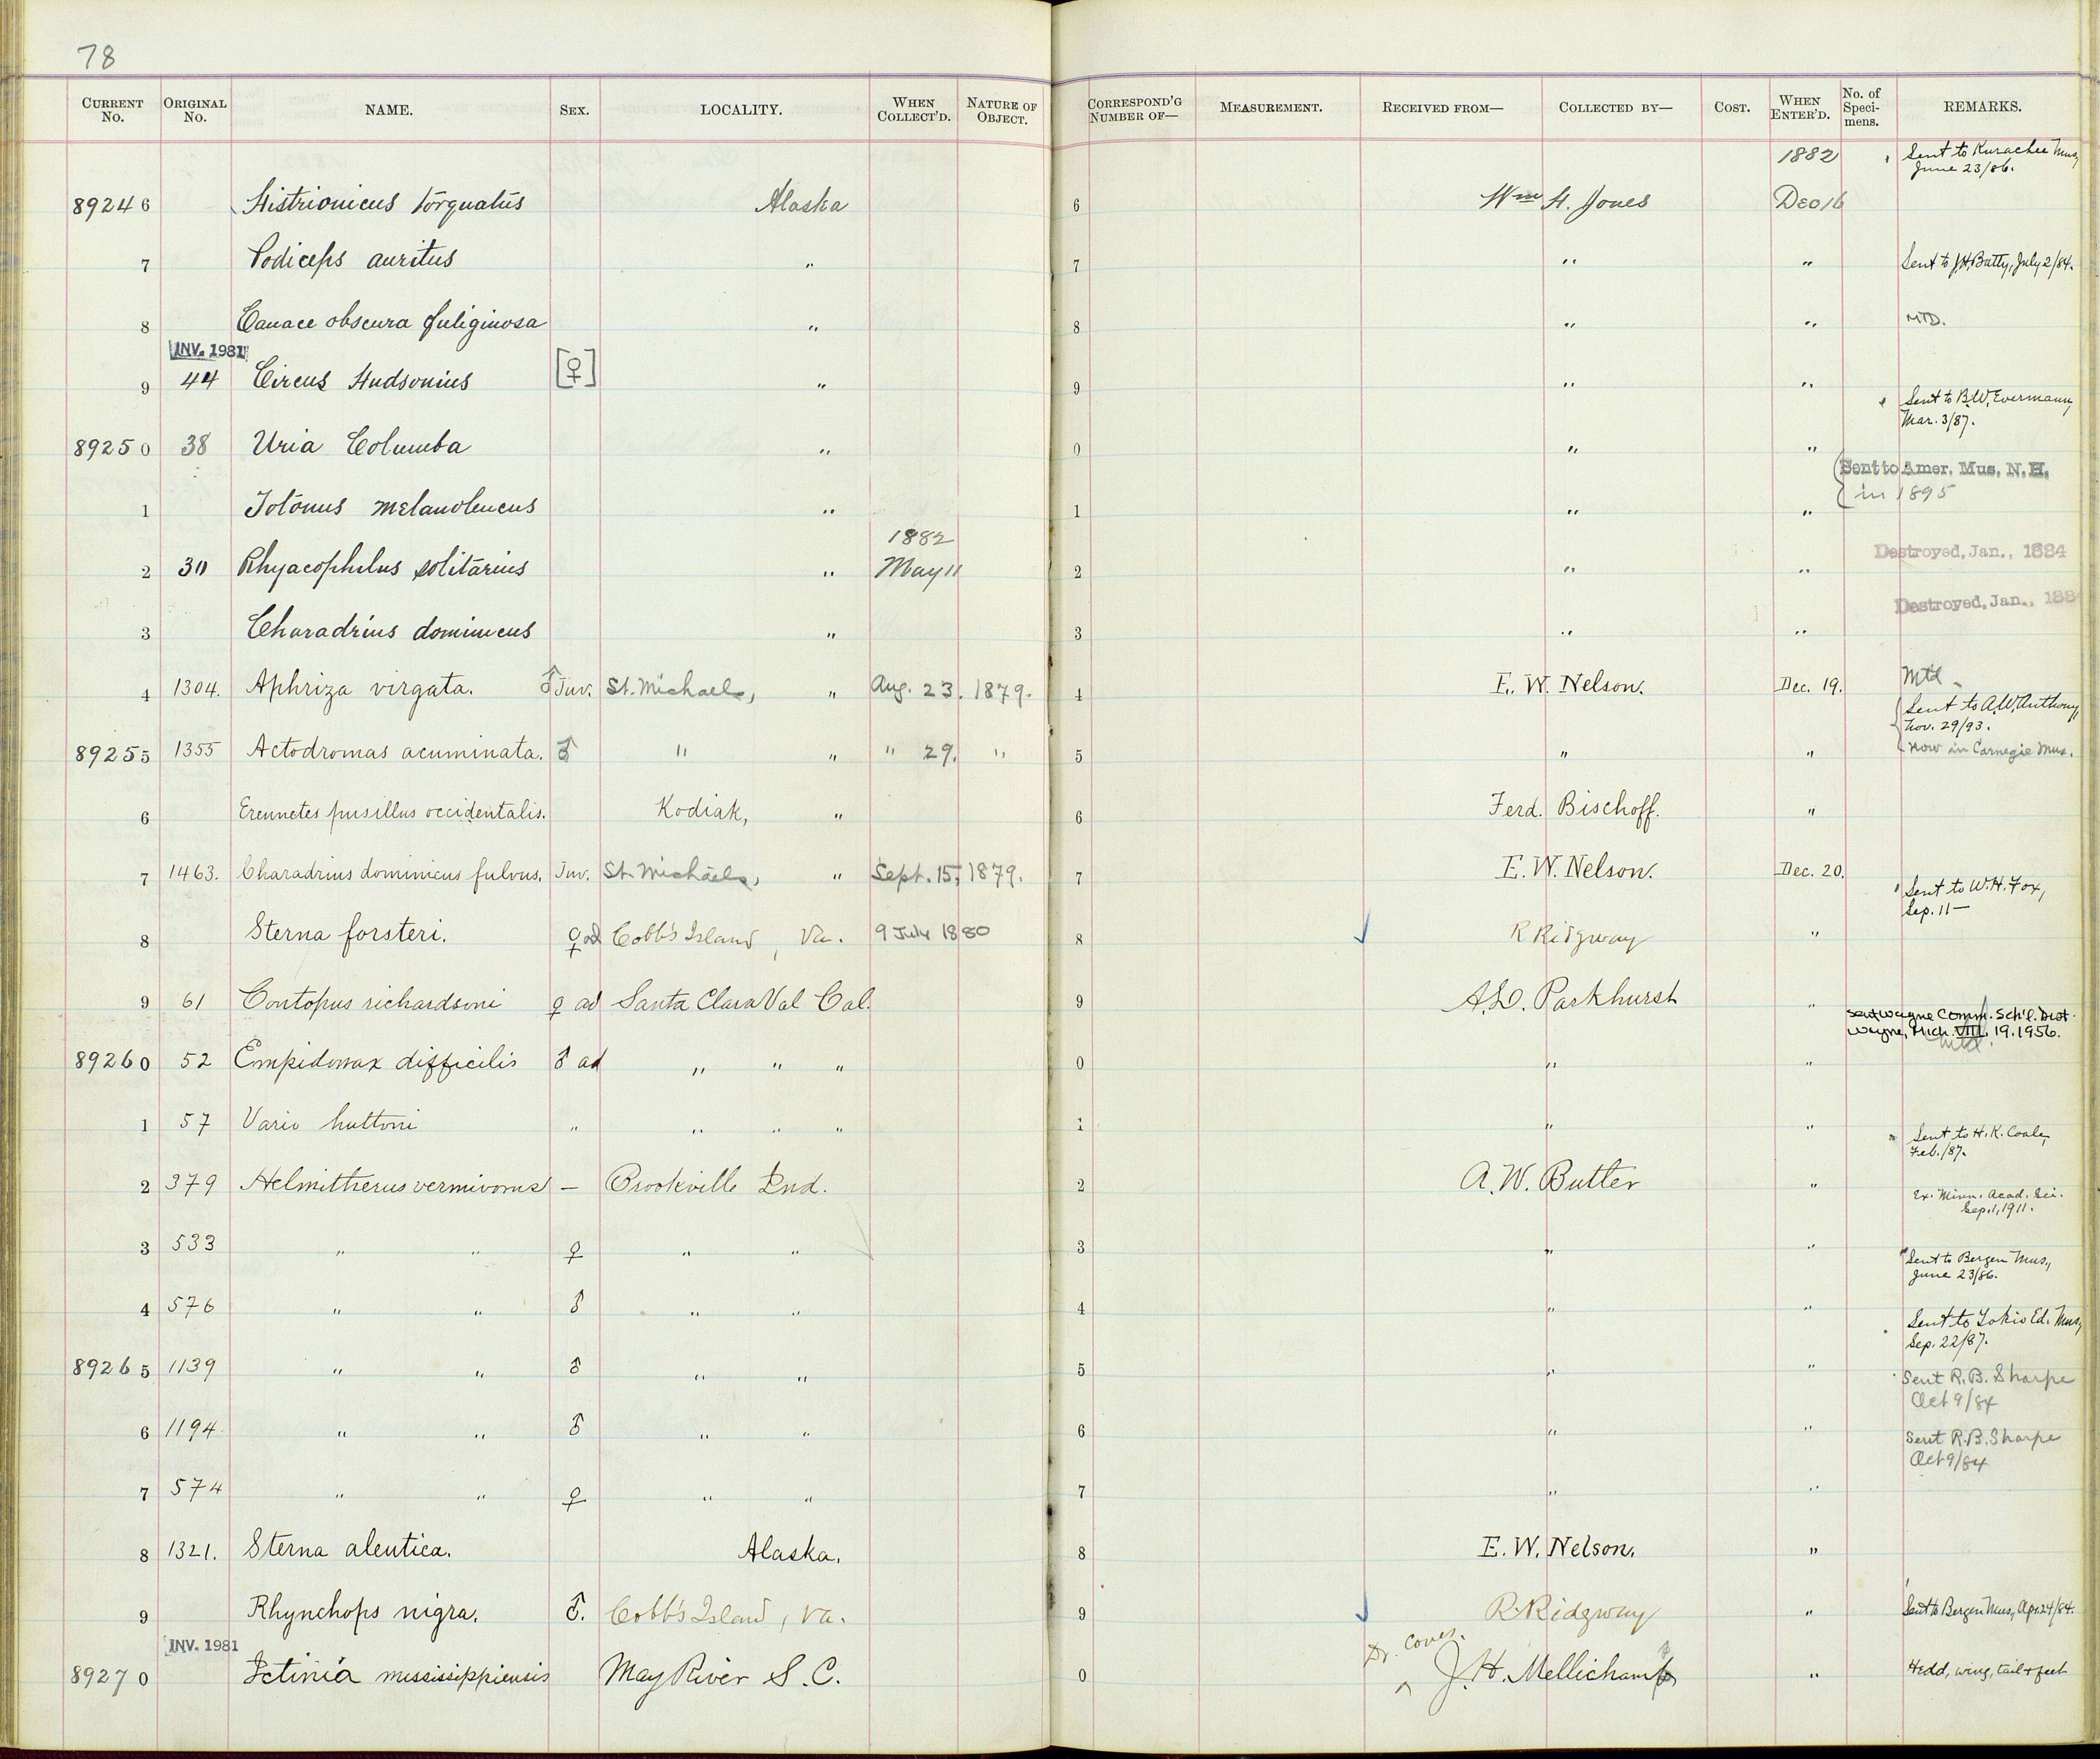 78
CURRENT No. ORIGINAL No. NAME. SEX. LOCALITY. WHEN COLLECT'D. NATURE OF OBJECT. CORRESPOND'G NUMBER OF— MEASUREMENT. RECEIVED FROM— COLLECTED BY— COST. WHEN ENTER'D. No. of Speci-mens. REMARKS.
1882 Sent to Kurachee Mus, June 23/86.
89246 Histrionicus torquatus Alaska 6 Wm H. Jones Dec 16
7 Podiceps auritus " 7 " " Sent to J.H. Batty, July 2/84.
8 Canace obscura fuliginosa " 8 " " MTD.
INV. 1981
9 44 Circus Hudsonius [♀] " 9 " "
Sent to B.W. Evermann, Mar. 3/87.
89250 38 Uria Columba " 0 " "
Sent to Amer. Mus. N.H. in 1895
1 Totanus melanoleucus " 1 " "
1882
Destroyed, Jan., 1884
2 30 Rhyacophilus solitarius " May 11 2 " "
Destroyed, Jan., 188
3 Charadrius dominicus " 3 " "
4 1304. Aphriza virgata. ♂ Juv. St. Michaels, " Aug. 23. 1879. 4 E. W. Nelson. Dec. 19. Mtd
Sent to A.W. Anthony, Nov. 29/93.
89255 1355 Actodromas acuminata. ♂ " " " 29. " 5 " " Now in Carnegie Mus.
6 Ereunetes pusillus occidentalis. Kodiak, " 6 Ferd. Bischoff. "
7 1463. Charadrius dominicus fulvus. Juv. St. Michaels, " Sept. 15, 1879. 7 E. W. Nelson. Dec. 20.
Sent to W. H. Fox, Sep. 11—
8 Sterna forsteri. ♀ ad Cobb's Island, Va. 9 July 1880 8 R Ridgway "
9 61 Contopus richardsoni ♀ ad Santa Clara Val Cal. 9 A.D. Parkhurst "
Sent Wayne Comm. Sch'l. Dist. Wayne, Mich. VIII. 19. 1956.
Mtd.
89260 52 Empidonax difficilis ♂ ad " " " 0 " "
1 57 Vario huttoni " " " " 1 " "
Sent to H. K. Coale, Feb./87.
2 379 Helmitherus vermivorus — Brookville Ind. 2 A. W. Butler "
Ex. Minn. Acad. Sci. Sep. 1, 1911.
3 533 " " ♀ " " 3 " "
Sent to Bergen Mus., June 23/86.
4 576 " " ♂ " " 4 " "
Sent to Tokio Ed. Mus, Sep. 22/87.
89265 1139 " " ♂ " " 5 " "
Sent R. B. Sharpe Oct 9/84
6 1194 " " ♂ " " 6 " "
Sent R. B. Sharpe Oct 9/84
7 574 " " ♀ " " 7 " "
8 1321. Sterna aleutica. Alaska. 8 E. W. Nelson. "
9 Rhynchops nigra. ♂. Cobb's Island, Va. 9 R Ridgway " Sent to Bergen Mus., Apr. 24/84.
INV. 1981
Dr. Coues.
89270 Ictinia mississippiensis May River S. C. 0 J. H. Mellichamp " Head, wing, tail + feet